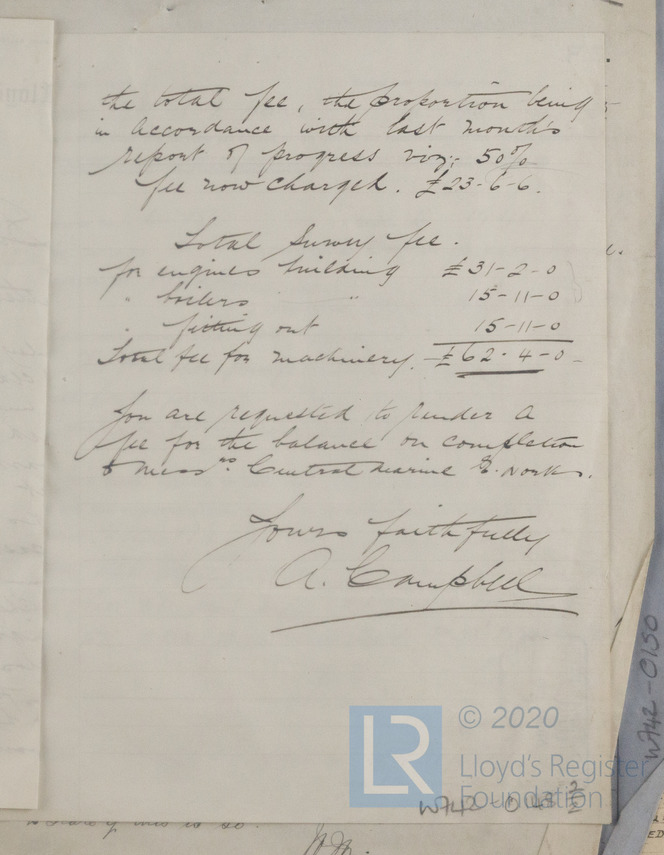 the total fee, the proportion being
in accordance with last month's
report of progress viz:- 50%
fee now charged. £23-6-6.
Total Survey fee.
for engines building £31-2-0
" boilers " 15-11-0
" fitting out 15-11-0
Total fee for machinery. £62-4-0-
You are requested to render a
fee for the balance on completion
to Messrs. Central Marine E. Works.
Yours faithfully
A. Campbell
© 2020
LR
Lloyd's Register
Foundation
W742-0150